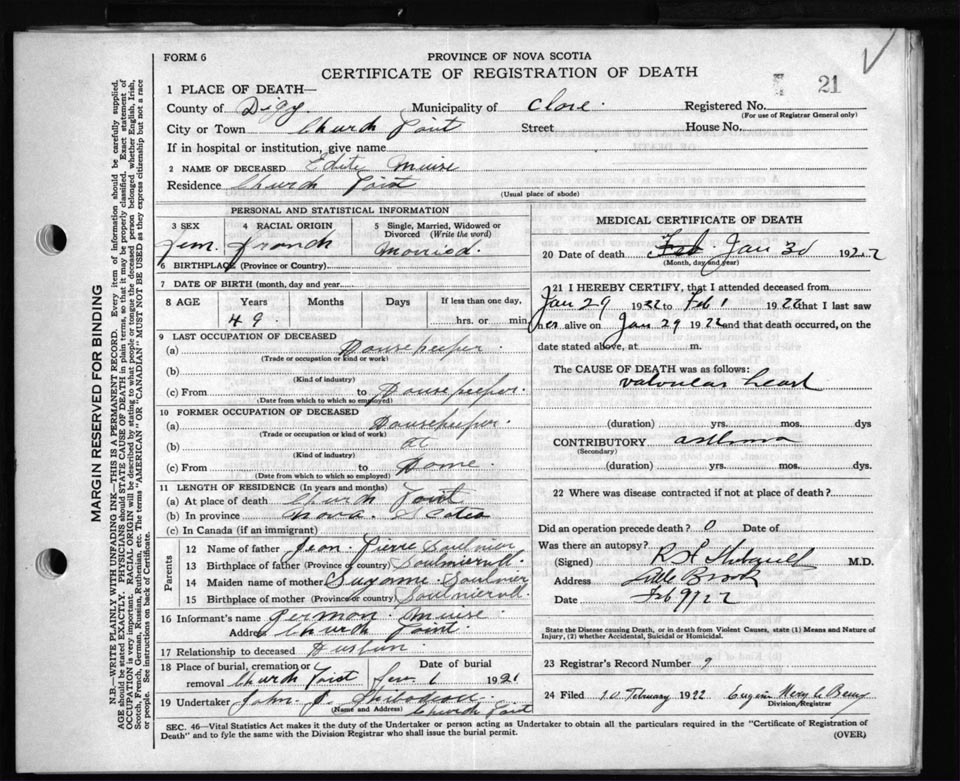 FORM 6
PROVINCE OF NOVA SCOTIA
CERTIFICATE OF REGISTRATION OF DEATH
21
1 PLACE OF DEATH—
County of Digy. Municipality of Clare. Registered No.
(For use of Registrar General only)
City or Town Church Point Street House No.
If in hospital or institution, give name
2 NAME OF DECEASED Edite Muise
Residence Church Point
(Usual place of abode)
PERSONAL AND STATISTICAL INFORMATION
3 SEX 4 RACIAL ORIGIN 5 Single, Married, Widowed or Divorced (Write the word)
Fem. Franch Morried.
6 BIRTHPLACE (Province or Country)
7 DATE OF BIRTH (month, day and year)
8 AGE Years Months Days If less than one day,
49. hrs. or min.
9 LAST OCCUPATION OF DECEASED
(a) Housekeeper
(Trade or occupation or kind or work)
(b)
(Kind of industry)
(c) From to Housekeeper.
(Date from which to which so employed)
10 FORMER OCCUPATION OF DECEASED
(a) Housekeeper.
(Trade or occupation or kind of work)
(b) at
(Kind of industry)
(c) From to Home.
(Date from which to which so employed)
11 LENGTH OF RESIDENCE (In years and months)
(a) At place of death Church Point
(b) In province Nova. Scotia
(c) In Canada (if an immigrant)
Parents
12 Name of father Jean Pierre Soulnier
13 Birthplace of father (Province or country) Soulniervill.
14 Maiden name of mother Suzanne Soulnier
15 Birthplace of mother (Province or country) Soulniervill
16 Informant's name Germon Muise
Address Church Point.
17 Relationship to deceased
18 Place of burial, cremation or removal Church Point Date of burial 1 1921
19 Undertaker John Thibodeau
(Name and Address) Church Point
MEDICAL CERTIFICATE OF DEATH
20 Date of death Feb Jan 30 1922
(Month, day and year)
21 I HEREBY CERTIFY, that I attended deceased from
Jan 29 1922 to Feb 1 1922 that I last saw
her alive on Jan. 29 1922 and that death occurred, on
date stated above, at m.
The CAUSE OF DEATH was as follows:
valvular heart
(duration) yrs. mos. dys
CONTRIBUTORY asthma
(Secondary)
(duration) yrs. mos. dys.
22 Where was disease contracted if not at place of death?
Did an operation precede death? 0 Date of
Was there an autopsy?
(Signed) M.D.
Address Brook
Date Feb 9/22
State the Disease causing Death, or in death from Violent Causes, state (1) Means and Nature of Injury, (2) whether Accidental, Suicidal or Homicidal.
23 Registrar's Record Number 9
24 Filed 10 February 1922
Division Registrar
SEC. 46—Vital Statistics Act makes it the duty of the Undertaker or person acting as Undertaker to obtain all the particulars required in the "Certificate of Registration of
Death" and to fyle the same with the Division Registrar who shall issue the burial permit.
(OVER)
MARGIN RESERVED FOR BINDING
N.B.—WRITE PLAINLY WITH UNFADING INK—THIS IS A PERMANENT RECORD. Every item of information should be carefully supplied.
AGE should be stated EXACTLY. PHYSICIANS should STATE CAUSE OF DEATH in plain terms, so that it may be properly classified. Exact statement of
OCCUPATION is very important. RACIAL ORIGIN will be described by stating to what people or tongue the deceased person belonged whether English, Irish,
Scotch, French, German, Russian, Ruthenian, etc. The terms "AMERICAN" OR "CANADIAN" MUST NOT BE USED as they express citizenship but not a race
or people. See instructions on back of Certificate.